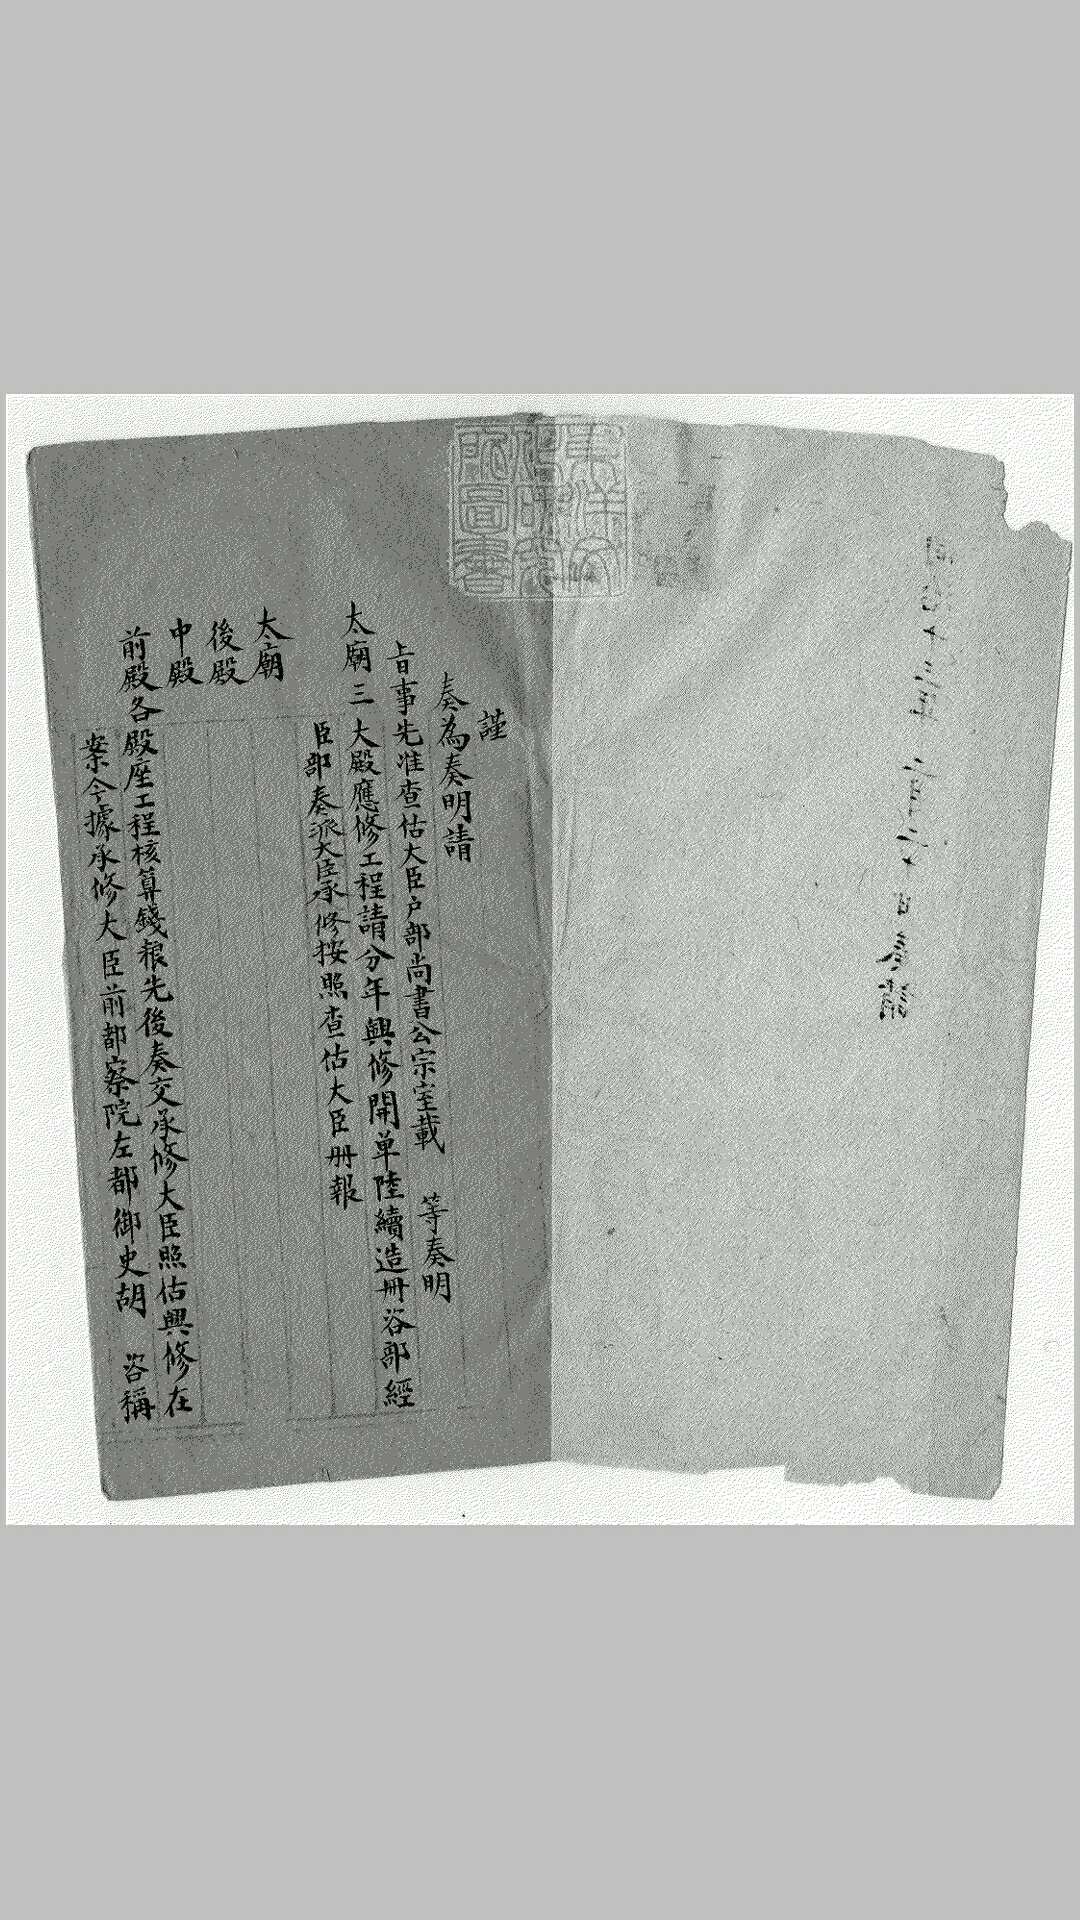 同治十三年二月二十日具稿
謹
奏為奏明請
旨事先准查估大臣户部尚書公宗室載 等奏明
太廟三大殿應修工程請分年興修開单陸續造册咨部經
臣部奏派大臣承修按照查估大臣册報
太廟
後殿
中殿
前殿各殿座工程核算錢粮先後奏交承修大臣照估興修在
案今據承修大臣前都察院左都御史胡 咨稱